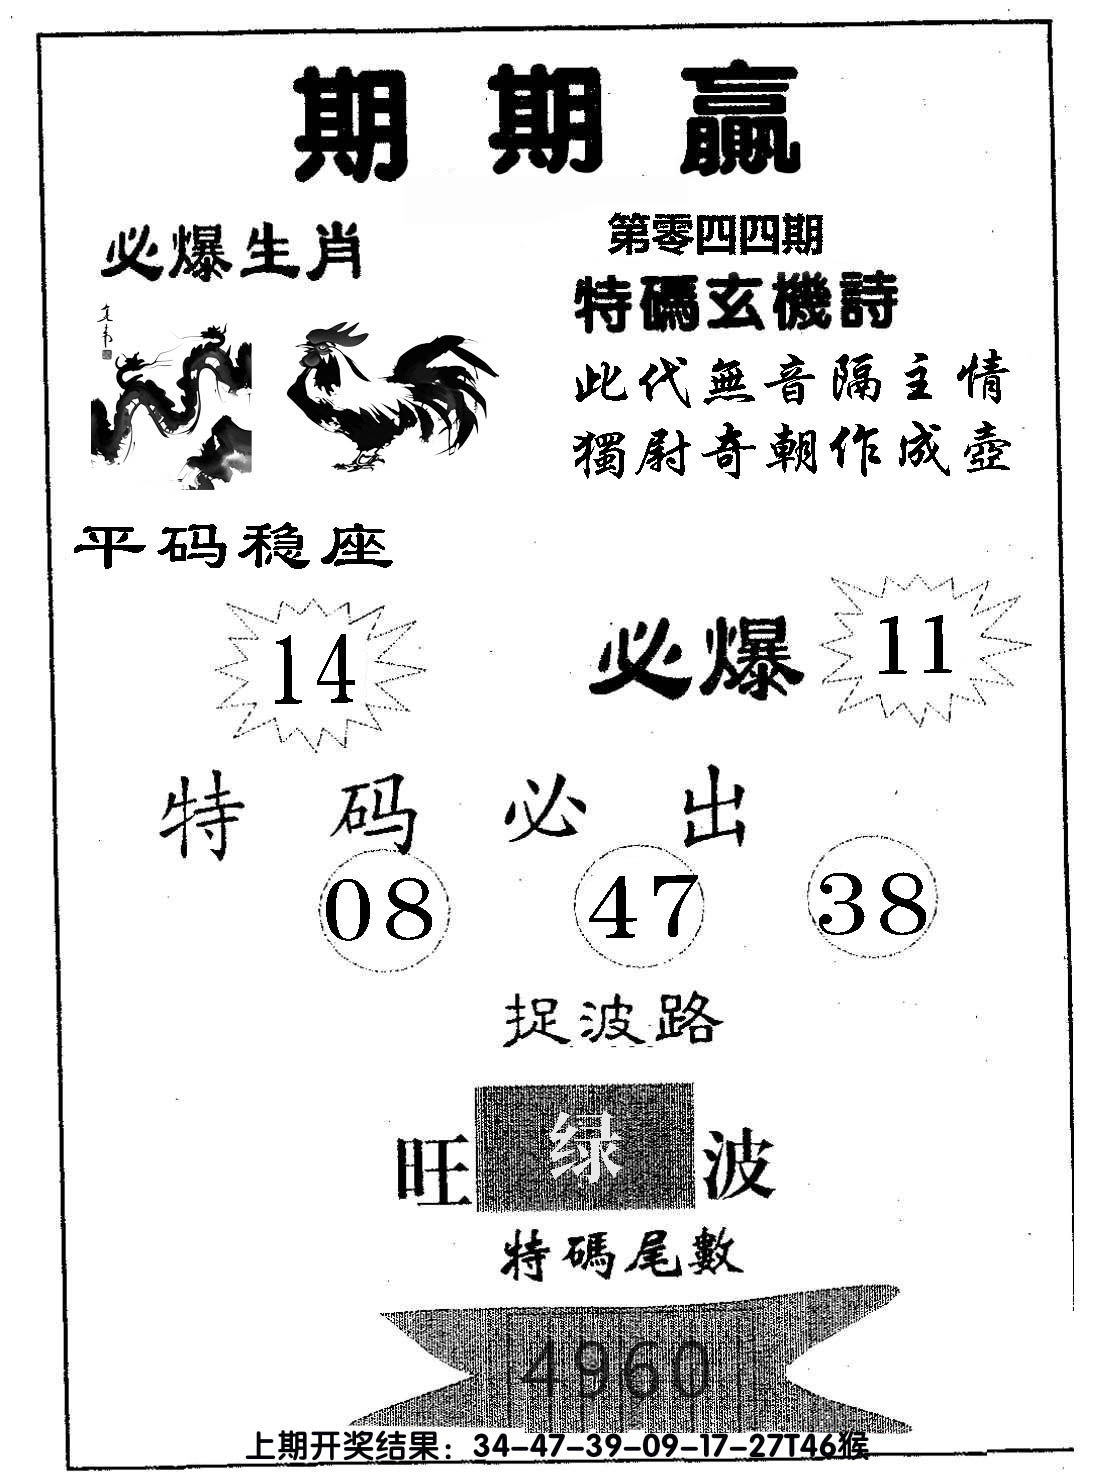 期期贏
必爆生肖
第零四四期
特碼玄機詩
此代無音隔主情
獨尉奇朝作成壺
平码稳座
14
必爆
11
特码必出
08 47 38
捉波路
旺绿波
特碼尾數
4960
上期开奖结果：34-47-39-09-17-27T46猴